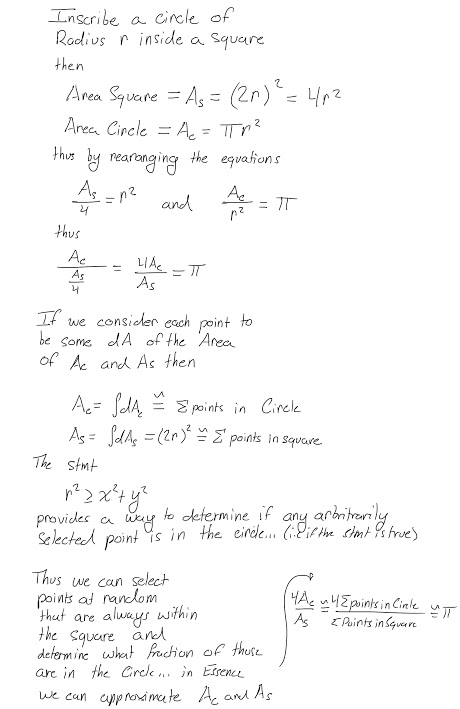 Inscribe a circle of
Radius r inside a square
then
Area Square = As = (2r)² = 4r²
Area Circle = Ac = πr²
thus by rearanging the equations
As/4 = r² and Ac/r² = π
thus
Ac/(As/4) = 4Ac/As = π
If we consider each point to
be some dA of the Area
of Ac and As then
Ac = ∫dAc ≅ Σ points in Circle
As = ∫dAs = (2r)² ≅ Σ points in square
The stmt
r² ≥ x² + y²
provides a way to determine if any arbritrarily
Selected point is in the circle... (i.e if the stmt is true)
Thus we can select
points at random
that are always within
the square and
determine what fraction of those
are in the Circle... in Essence
we can approximate Ac and As
4Ac/As ≅ 4Σ points in Circle/Σ Points in Square ≅ π